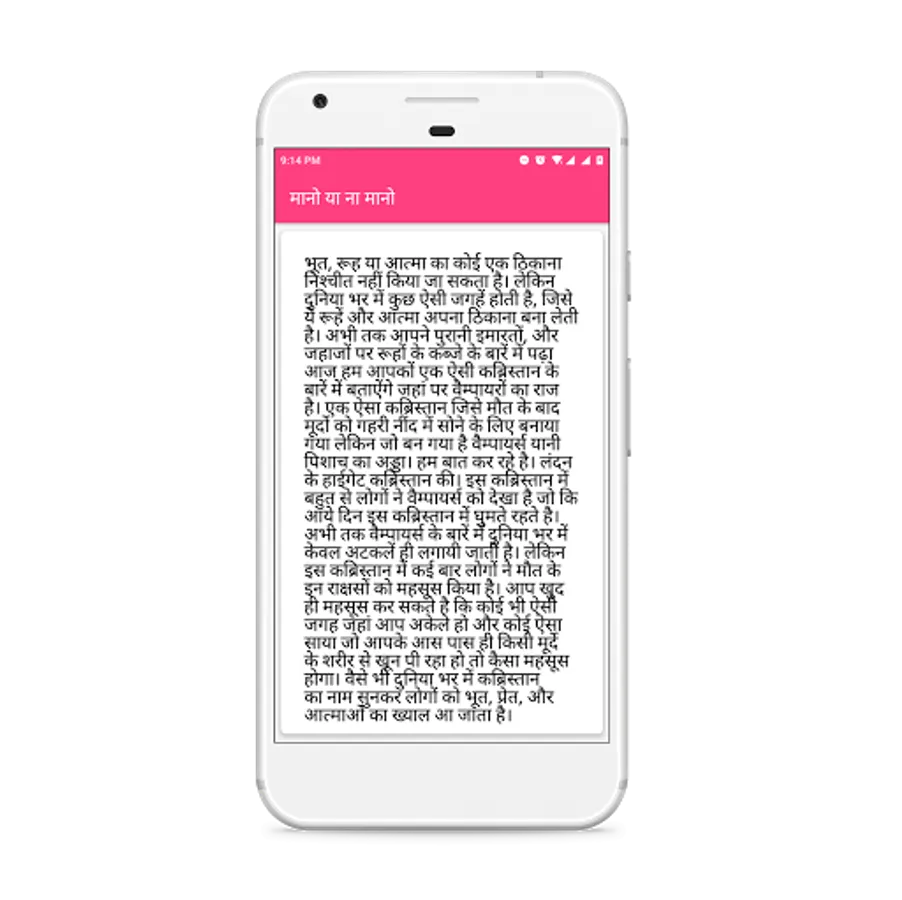 9:14 PM
मानो या ना मानो
भूत, रूह या आत्मा का कोई एक ठिकाना
निश्चीत नहीं किया जा सकता है। लेकिन
दुनिया भर में कुछ ऐसी जगहें होती है, जिसे
ये रूहें और आत्मा अपना ठिकाना बना लेती
है। अभी तक आपने पुरानी इमारतों, और
जहाजों पर रूहों के कब्जे के बारें में पढ़ा
आज हम आपकों एक ऐसी कब्रिस्तान के
बारें में बताऐंगे जहां पर वैम्पायरों का राज
है। एक ऐसा कब्रिस्तान जिसे मौत के बाद
मूर्दो को गहरी नींद में सोने के लिए बनाया
गया लेकिन जो बन गया है वैम्पायर्स यानी
पिशाच का अड्डा। हम बात कर रहे है। लंदन
के हाईगेट कब्रिस्तान की। इस कब्रिस्तान में
बहुत से लोगों ने वैम्पायर्स को देखा है जो कि
आये दिन इस कब्रिस्तान में घुमते रहते है।
अभी तक वैम्पायर्स के बारें में दुनिया भर में
केवल अटकलें ही लगायी जाती है। लेकिन
इस कब्रिस्तान में कई बार लोगों ने मौत के
इन राक्षसों को महसूस किया है। आप खुद
ही महसूस कर सकते है कि कोई भी ऐसी
जगह जहां आप अकेले हो और कोई ऐसा
साया जो आपके आस पास ही किसी मूर्दे
के शरीर से खून पी रहा हो तो कैसा महसूस
होगा। वैसे भी दुनिया भर में कब्रिस्तान
का नाम सुनकर लोगों को भूत, प्रेत, और
आत्माओं का ख्याल आ जाता है।